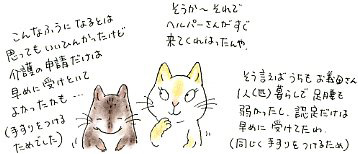 こんなふうになるとは
思ってもいいひんかったけど
介護の申請だけは
早めに受けといて
よかったかも…
(手すりをつける
ためでした)
そうか〜それで
ヘルパーさんがすぐ
来てくれはったんや。
そう言えばうちもお義母さん
1人(匹)暮らしで足腰も
弱かったし、認定だけは
早めに受けてたわ。
(同じく手すりをつけるため)